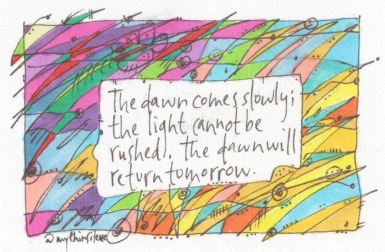 The dawn comes slowly;
the light cannot be
rushed. The dawn will
return tomorrow.